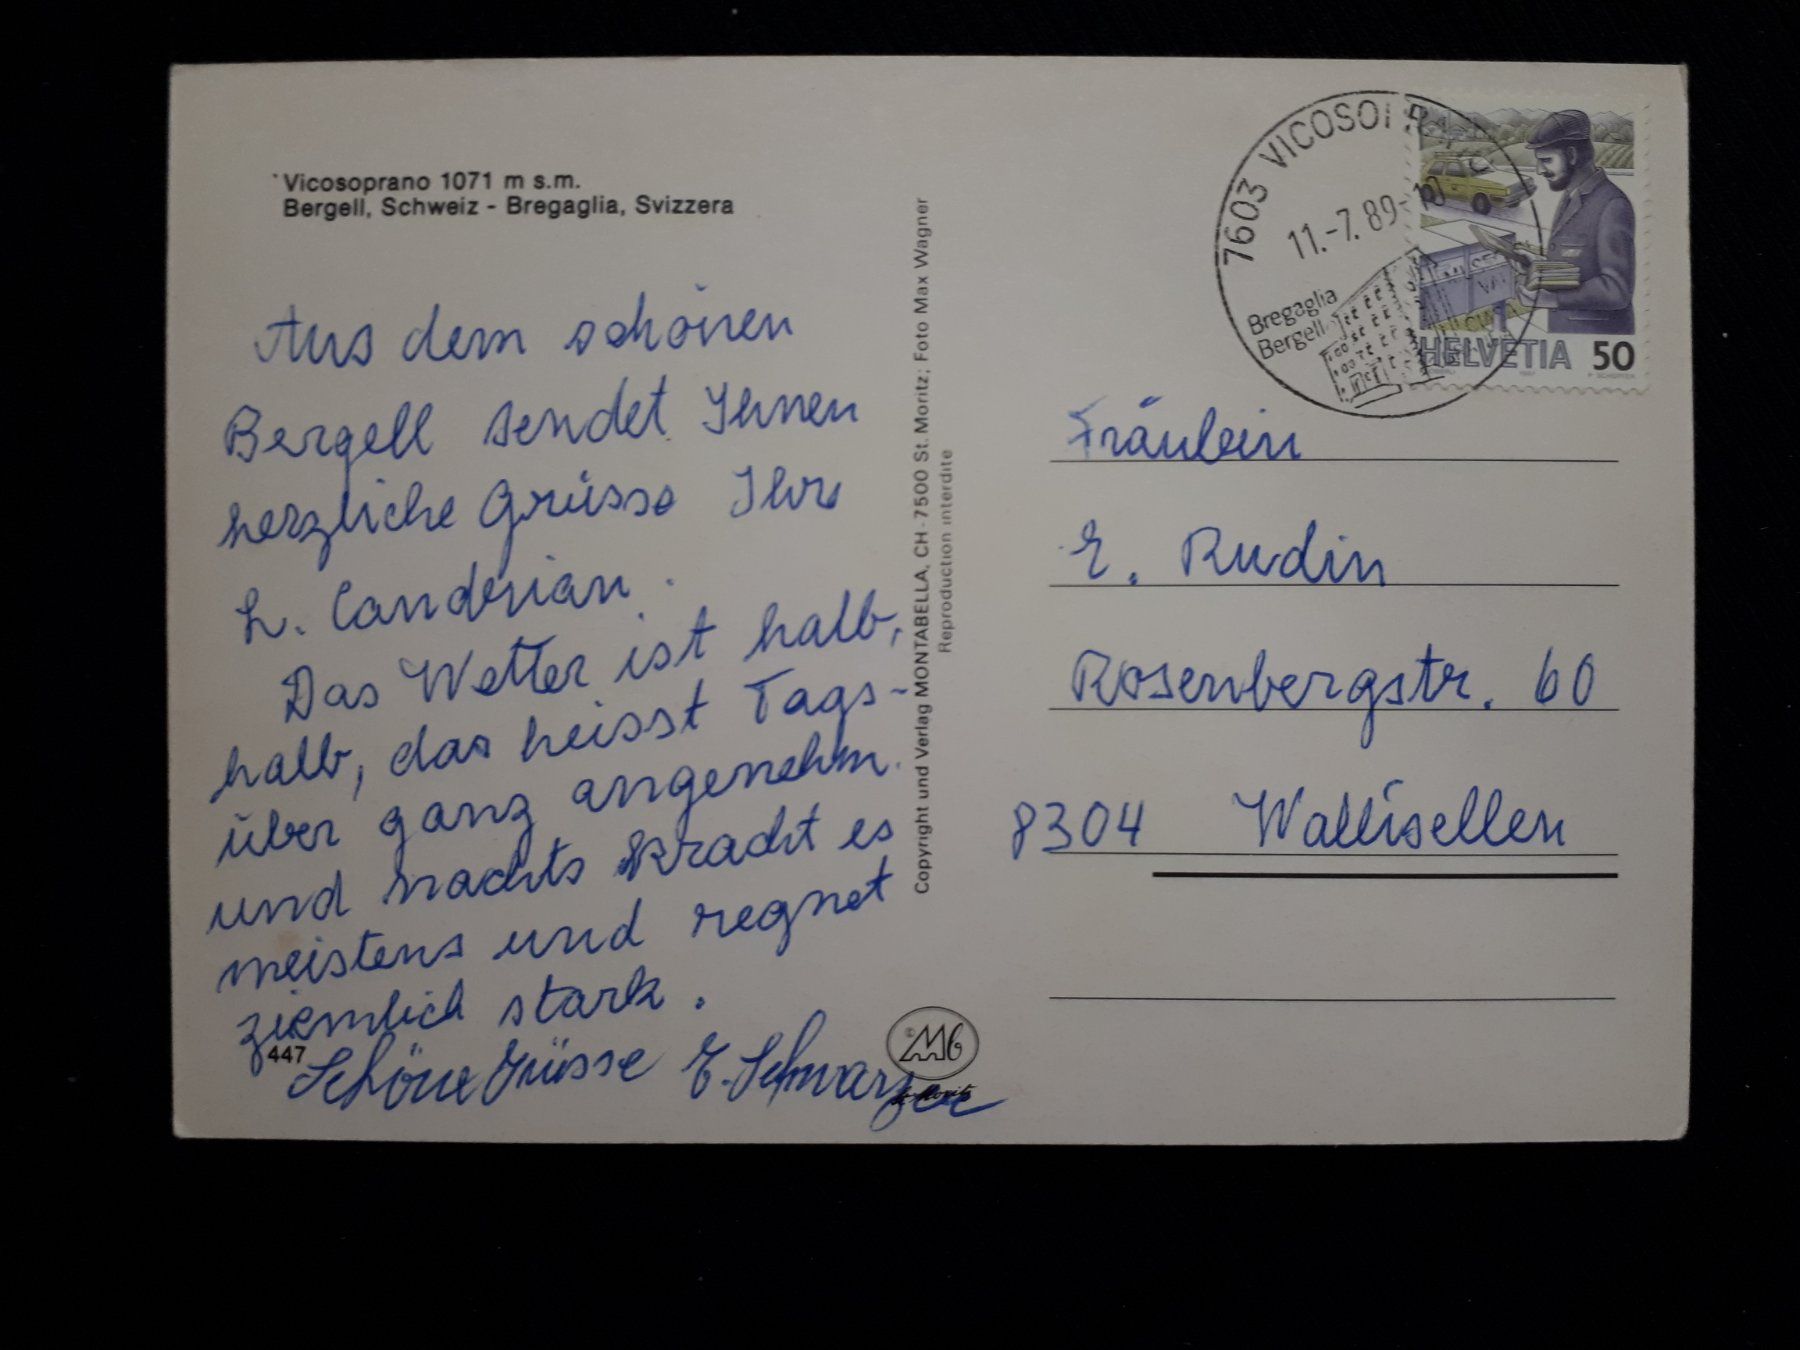 Vicosoprano 1071 m s.m.
Bergell, Schweiz - Bregaglia, Svizzera
Aus dem schönen
Bergell sendet Ihnen
herzliche Grüsse Ihre
L. Canderian.
Das Wetter ist halb,
halb, das heisst Tags-
über ganz angenehm.
und nachts kracht es
meistens und regnet
ziemlich stark.
Schöne Grüsse E. Schwarzer
447
Copyright und Verlag MONTABELLA, CH-7500 St. Moritz; Foto Max Wagner
Reproduction interdite
Mb
St. Moritz
7603 VICOSOPRA
11.-7.89-10
Bregaglia
Bergell
HELVETIA 50
Fräulein
E. Rudin
Rosenbergstr. 60
8304 Wallisellen